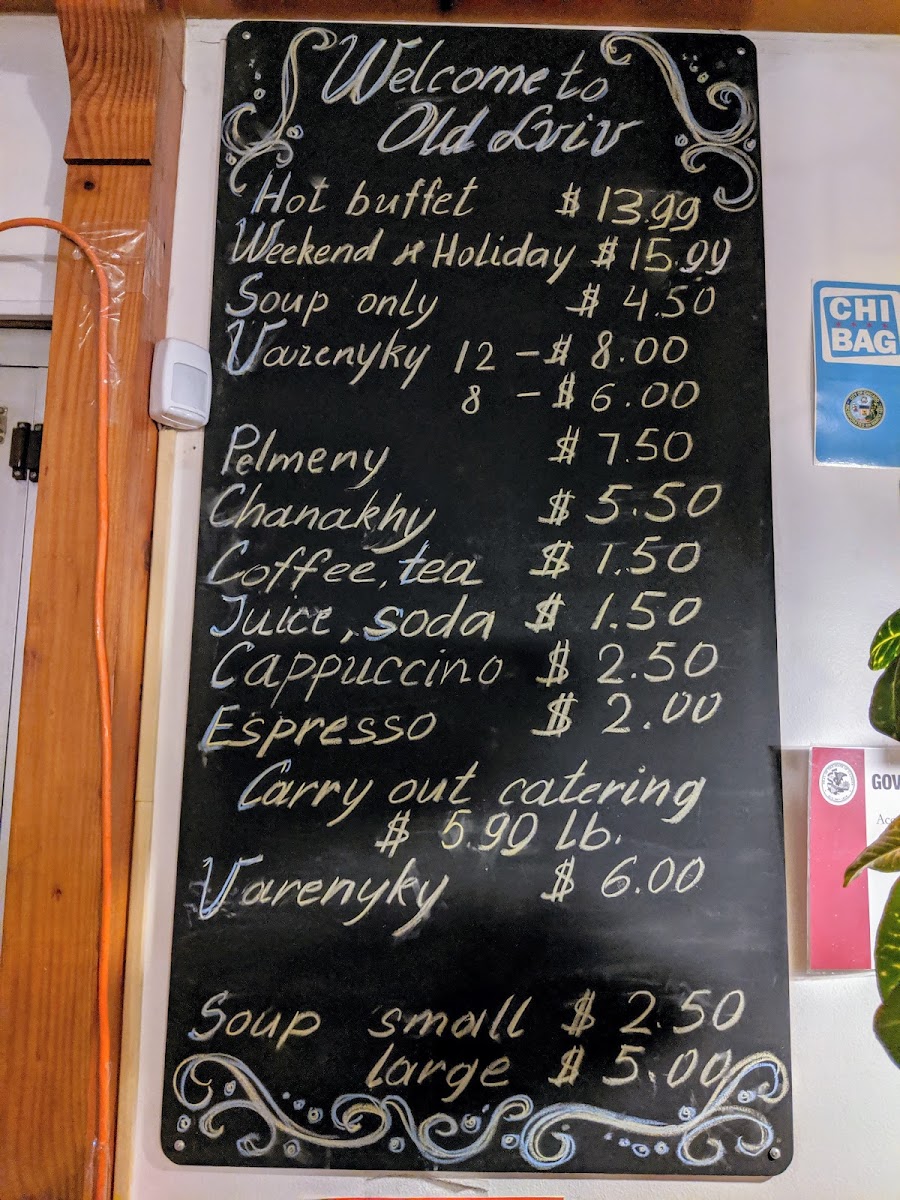 Welcome to
Old Lviv
Hot buffet $ 13.99
Weekend & Holiday $ 15.99
Soup only $ 4.50
Varenyky 12 - $ 8.00
8 - $ 6.00
Pelmeny $ 7.50
Chanakhy $ 5.50
Coffee, tea $ 1.50
Juice, soda $ 1.50
Cappuccino $ 2.50
Espresso $ 2.00
Carry out catering
$ 5.90 lb.
Varenyky $ 6.00
Soup small $ 2.50
large $ 5.00
CHI
BAG
GOV